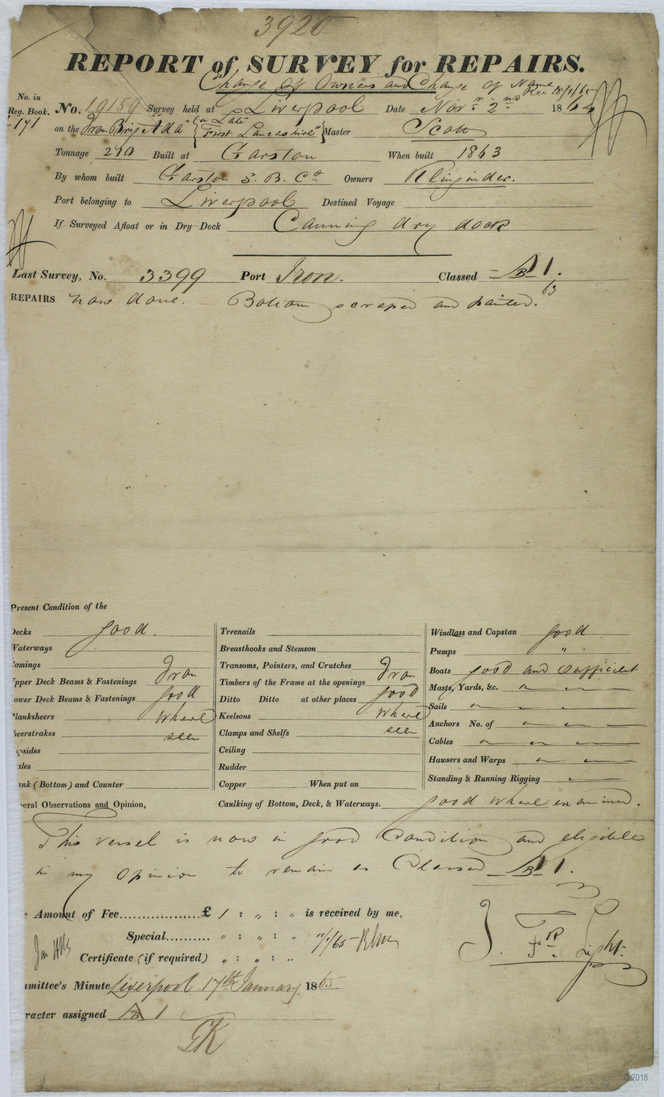 3920
REPORT of SURVEY for REPAIRS.
Change of Owners and Change of Name
No. in
Reg. Book.
171
No. 19159 Survey held at Liverpool Date Novr 2nd 1864
on the Iron Brig "Ada" (Late "First Lancashire") Master Scott
Tonnage 210 Built at Garston When built 1863
By whom built Garston S. B. Co Owners Klingender.
Port belonging to Liverpool Destined Voyage
If Surveyed Afloat or in Dry Dock Canning dry dock
Last Survey, No. 3399 Port Iron. Classed A 1.
63
REPAIRS now done. Bottom scraped and painted.
Present Condition of the
Decks good.
Waterways
Comings
Upper Deck Beams & Fastenings Iron
Lower Deck Beams & Fastenings good
Planksheers where
Sheerstrakes seen
Topsides
Wales
Plank (Bottom) and Counter
Treenails
Breasthooks and Stemson
Transoms, Pointers, and Crutches Iron
Timbers of the Frame at the openings
Ditto Ditto at other places good
Keelsons where
Clamps and Shelfs seen
Ceiling
Rudder
Copper When put on
Caulking of Bottom, Deck, & Waterways. good where examined.
Windlass and Capstan good
Pumps "
Boats good and sufficient
Masts, Yards, &c.
Sails
Anchors No. of
Cables
Hawsers and Warps
Standing & Running Rigging
General Observations and Opinion,
This vessel is now in good Condition and eligible
in my Opinion to remain as Classed A 1.
The Amount of Fee.................£ 1 : " : " is received by me,
Special.......... " : " : "
Certificate (if required) " : " : "
Committee's Minute Liverpool 17th January 1865
Character assigned A 1
2018